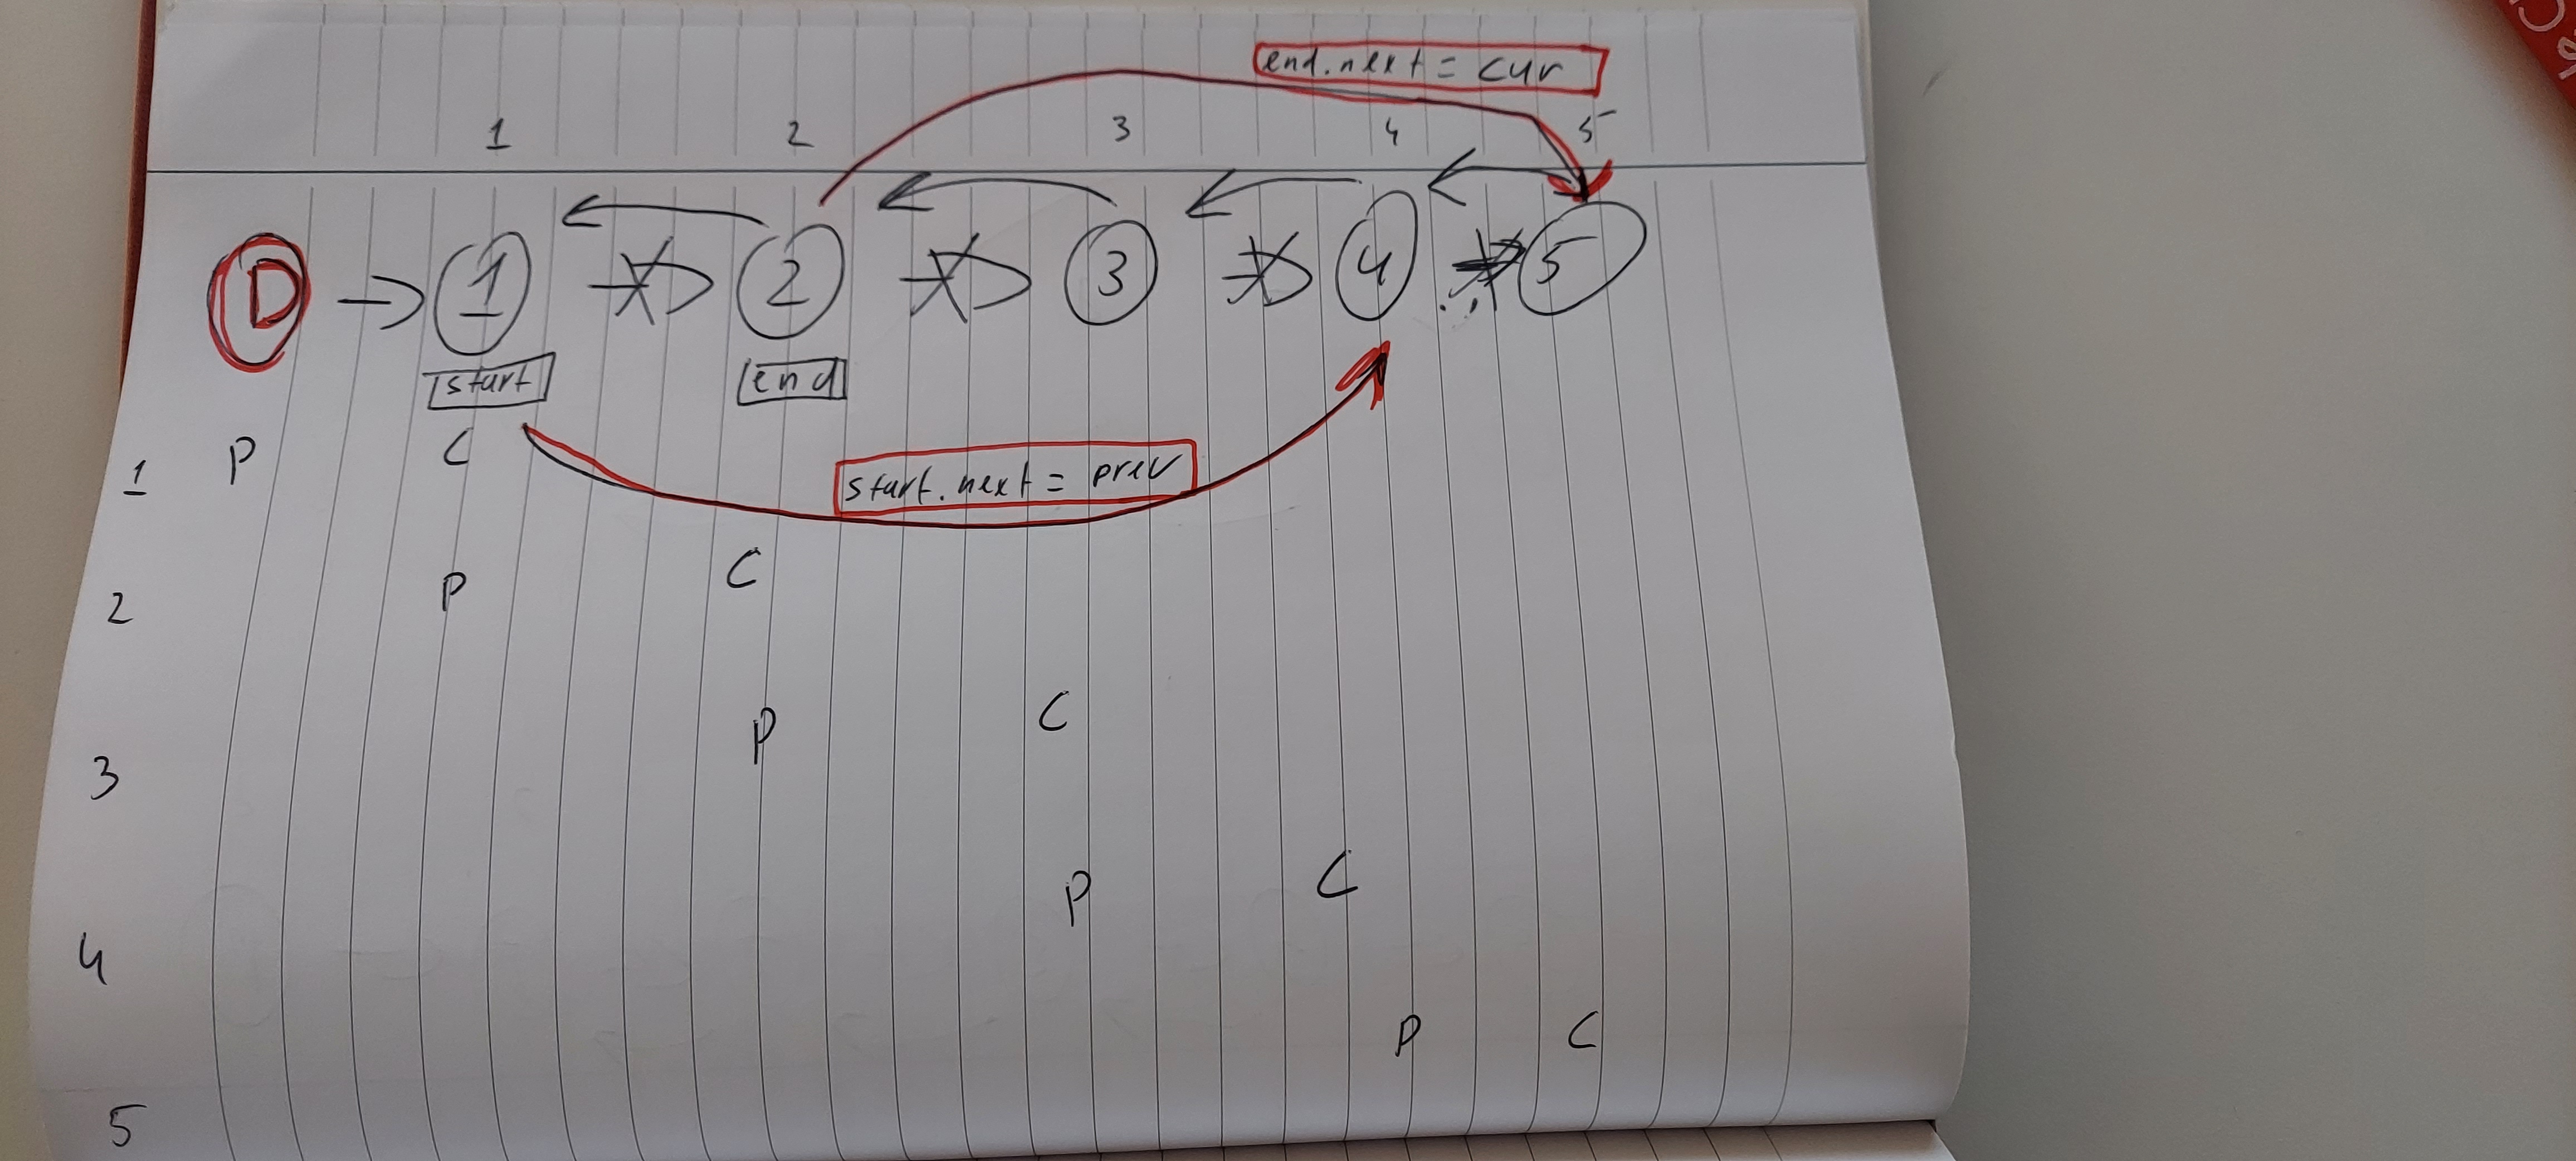 end.next = cur
1 2 3 4 5
D 1 2 3 4 5
start end
P C
1
start.next = prev
P C
2
P C
3
P C
4
P C
5